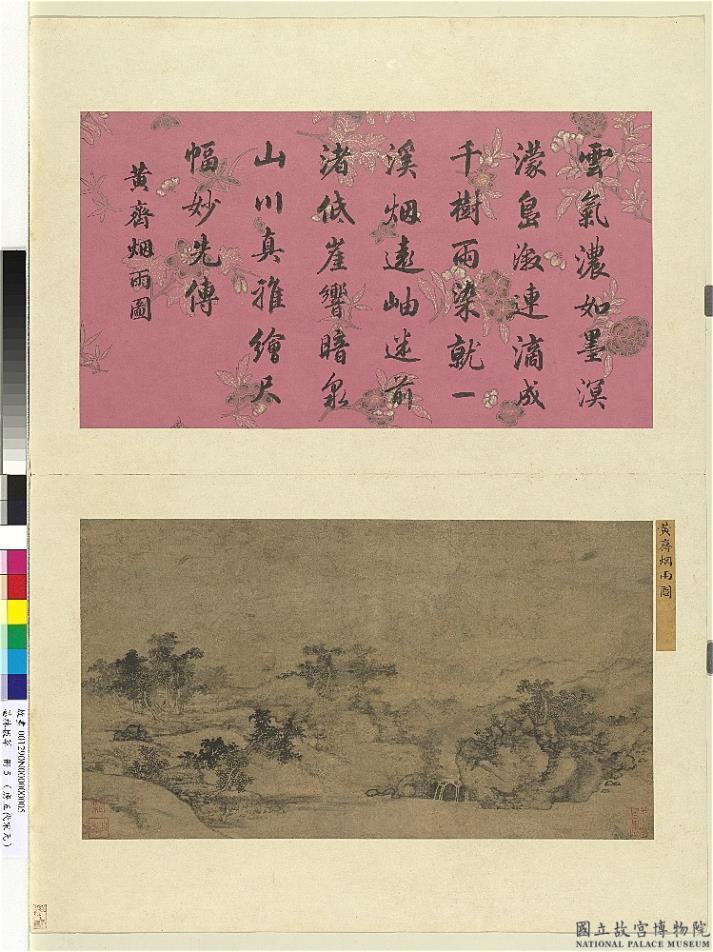 雲氣濃如墨溟
濛島漵連滴成
千樹雨染就一
溪烟遠岫迷前
渚低崖響暗泉
山川真雅繪尺
幅妙先傳
黄齊烟雨圖
黄齊烟雨圖
故畫 001290N000000005
冊5 (唐五代宋元)
國立故宮博物院
NATIONAL PALACE MUSEUM